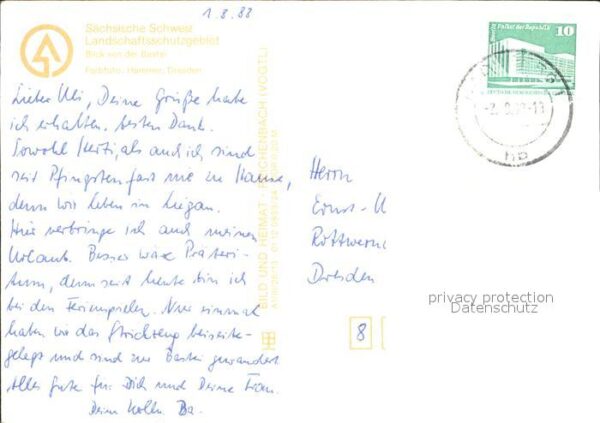 1.8.88
Sächsische Schweiz
Landschaftsschutzgebiet
Blick von der Bastei
Farbfoto: Hammer, Dresden
Lieber Uli, Deine Grüße habe
ich erhalten. besten Dank.
Sowohl Herti, als auch ich sind
seit Pfingsten fast nie zu Hause,
denn wir leben in
Hier verbringe ich auch meinen
Urlaub. Besser wäre Präteri-
tum, denn seit heute bin ich
bei den Ferienspielen. Nur einmal
haben wir das Strickzeug beiseite-
gelegt und sind zur Bastei gewandert
Alles Gute für Dich und Deine Frau.
Dein
BILD UND HEIMAT · REICHENBACH (VOGTL)
Palast der Republik
10
Herrn
Ernst-U
Dresden
8
privacy protection
Datenschutz